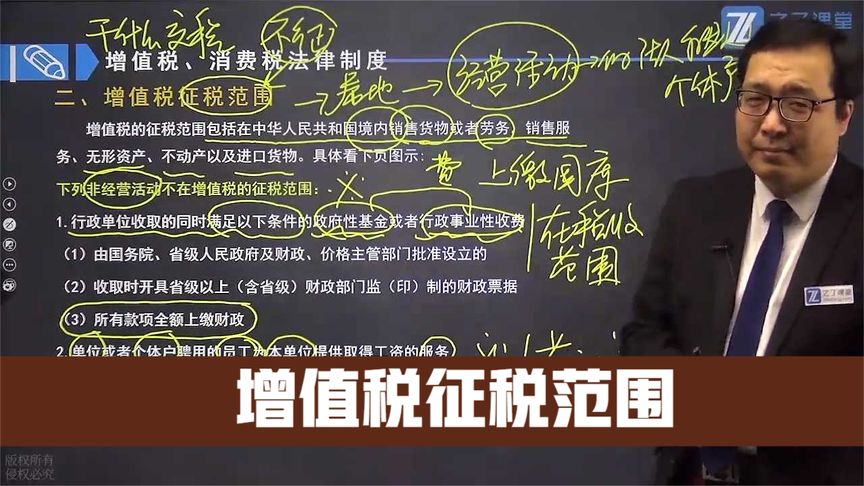 干什么交税 不征
之了课堂
增值税、消费税法律制度
二、增值税征税范围 → 属地 → 经营活动
个体户
增值税的征税范围包括在中华人民共和国境内销售货物或者劳务、销售服
务、无形资产、不动产以及进口货物。具体看下页图示:
费 上缴国库
下列非经营活动不在增值税的征税范围:
1.行政单位收取的同时满足以下条件的政府性基金或者行政事业性收费
(1)由国务院、省级人民政府及财政、价格主管部门批准设立的
(2)收取时开具省级以上(含省级)财政部门监(印)制的财政票据
(3)所有款项全额上缴财政
范围
之了课堂
2.单位或者个体户聘用的员工为本单位提供取得工资的服务
增值税征税范围
版权所有
侵权必究